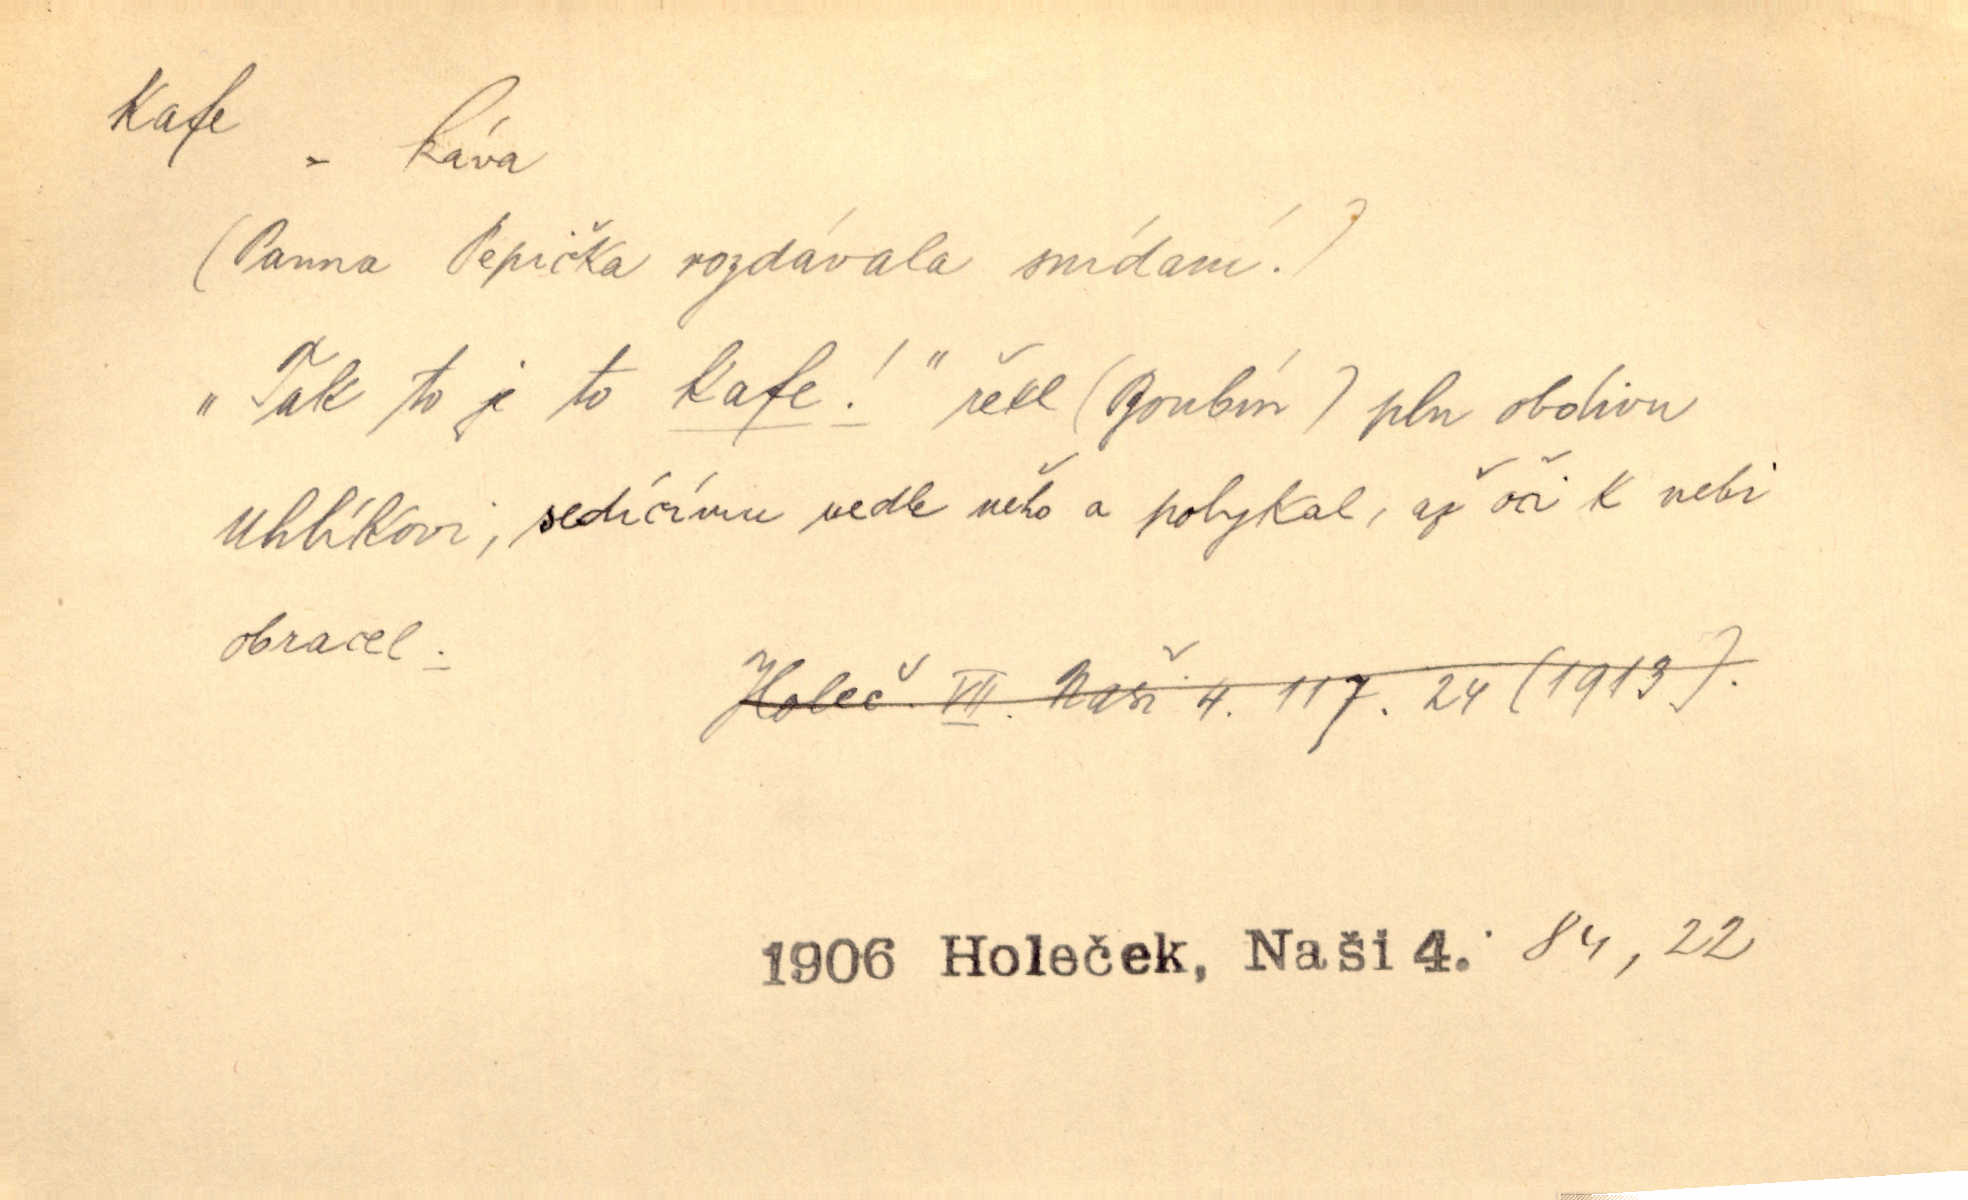 Kafe - káva
(Panna Pepička rozdávala snídaní.)
„Tak to je to kafe!" řekl (Boubín) pln obdivu
Uhlíkovi, sedícímu vedle něho a polykal, až oči k nebi
obracel.
Holeč. VII. Naši 4. 117. 24 (1913).
1906 Holeček, Naši 4. 84, 22